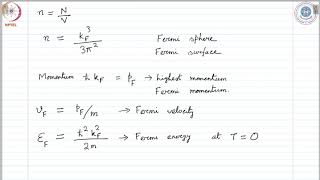 NPTEL
n = N/V
n = k_F^3/3π² Fermi sphere
Fermi surface
Momentum ħ k_F = p_F → highest momentum
Fermi momentum
v_F = p_F/m → Fermi velocity
ε_F = ħ² k_F²/2m → Fermi energy at T = 0